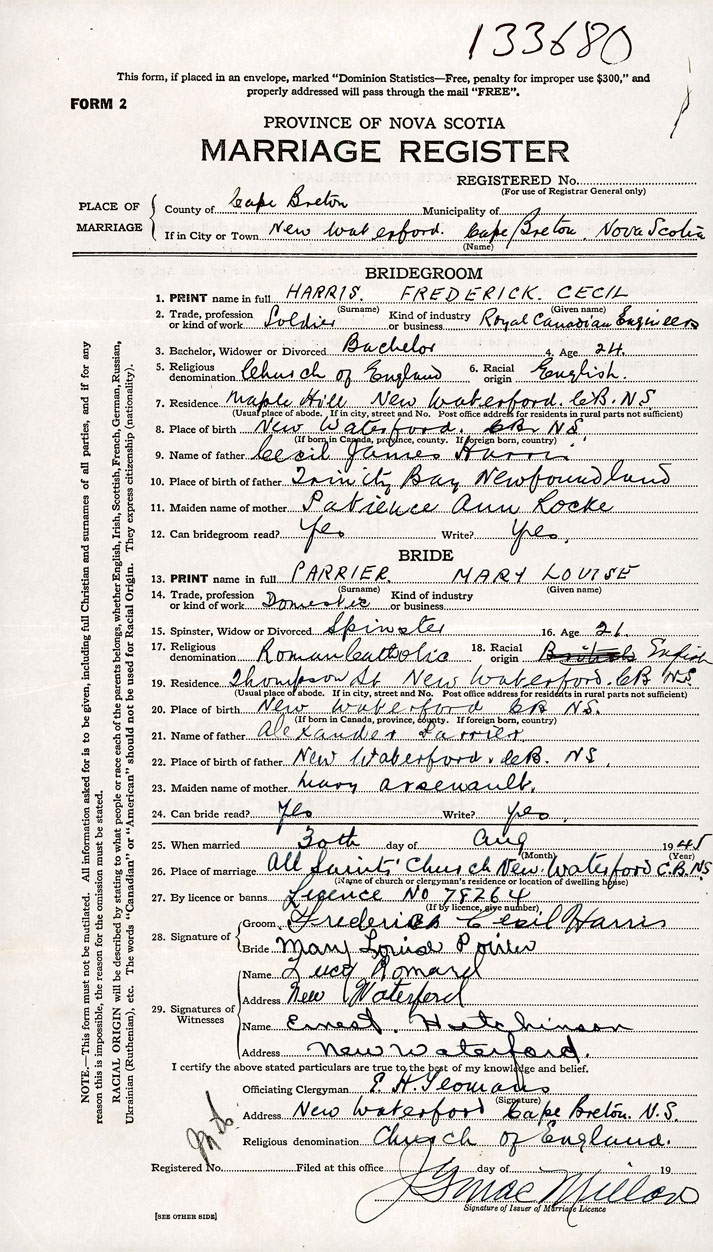 133680
This form, if placed in an envelope, marked "Dominion Statistics—Free, penalty for improper use $300," and
properly addressed will pass through the mail "FREE".
FORM 2
PROVINCE OF NOVA SCOTIA
MARRIAGE REGISTER
REGISTERED No.
(For use of Registrar General only)
PLACE OF MARRIAGE
County of Cape Breton Municipality of
If in City or Town New Waterford. Cape Breton. Nova Scotia
(Name)
BRIDEGROOM
1. PRINT name in full HARRIS. FREDERICK. CECIL
(Surname) (Given name)
2. Trade, profession or kind of work Soldier Kind of industry or business Royal Canadian Engineers
3. Bachelor, Widower or Divorced Bachelor 4. Age 24.
5. Religious denomination Church of England 6. Racial origin English.
7. Residence Maple Hill New Waterford. CB. NS
(Usual place of abode. If in city, street and No. Post office address for residents in rural parts not sufficient)
8. Place of birth New Waterford. CB. NS.
(If born in Canada, province, county. If foreign born, country)
9. Name of father Cecil James Harris
10. Place of birth of father Trinity Bay Newfoundland
11. Maiden name of mother Patience Ann Locke
12. Can bridegroom read? Yes Write? Yes.
BRIDE
13. PRINT name in full PARRIER. MARY LOUISE
(Surname) (Given name)
14. Trade, profession or kind of work Domestic Kind of industry or business
15. Spinster, Widow or Divorced Spinster 16. Age 21.
17. Religious denomination Roman Catholic 18. Racial origin British English
19. Residence Thompson St New Waterford. CB N.S.
(Usual place of abode. If in city, street and No. Post office address for residents in rural parts not sufficient)
20. Place of birth New Waterford CB NS.
(If born in Canada, province, county. If foreign born, country)
21. Name of father Alexander Parrier
22. Place of birth of father New Waterford. CB. NS.
23. Maiden name of mother Mary Arsenault.
24. Can bride read? Yes Write? Yes.
25. When married 30th day of Aug 1945
(Month) (Year)
26. Place of marriage All Saints' Church New Waterford C.B. NS
(Name of church or clergyman's residence or location of dwelling house)
27. By licence or banns Licence No 78264
(If by licence, give number)
28. Signature of
Groom Frederick Cecil Harris
Bride Mary Louise Poirier
29. Signatures of Witnesses
Name Lucy Romard
Address New Waterford
Name Ernest. Hutchinson
Address New Waterford.
I certify the above stated particulars are true to the best of my knowledge and belief.
Officiating Clergyman E. H. Yeomans
(Signature)
Address New Waterford Cape Breton. N.S.
Religious denomination Church of England.
Registered No. Filed at this office day of 19
Signature of Issuer of Marriage Licence
[SEE OTHER SIDE]
NOTE.—This form must not be mutilated. All information asked for is to be given, including full Christian and surnames of all parties, and if for any
reason this is impossible, the reason for the omission must be stated.
RACIAL ORIGIN will be described by stating to what people or race each of the parents belongs, whether English, Irish, Scottish, French, German, Russian,
Ukrainian (Ruthenian), etc. The words "Canadian" or "American" should not be used for Racial Origin. They express citizenship (nationality).